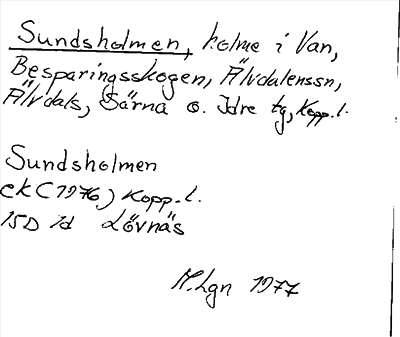 Sundsholmen, holme i Van,
Besparingsskogen, Älvdalenssn,
Älvdals, Särna o. Idre tg, Kopp. l.
Sundsholmen
ek (1976) Kopp. l.
15D 1d Lövnäs
M.Lgn 1977